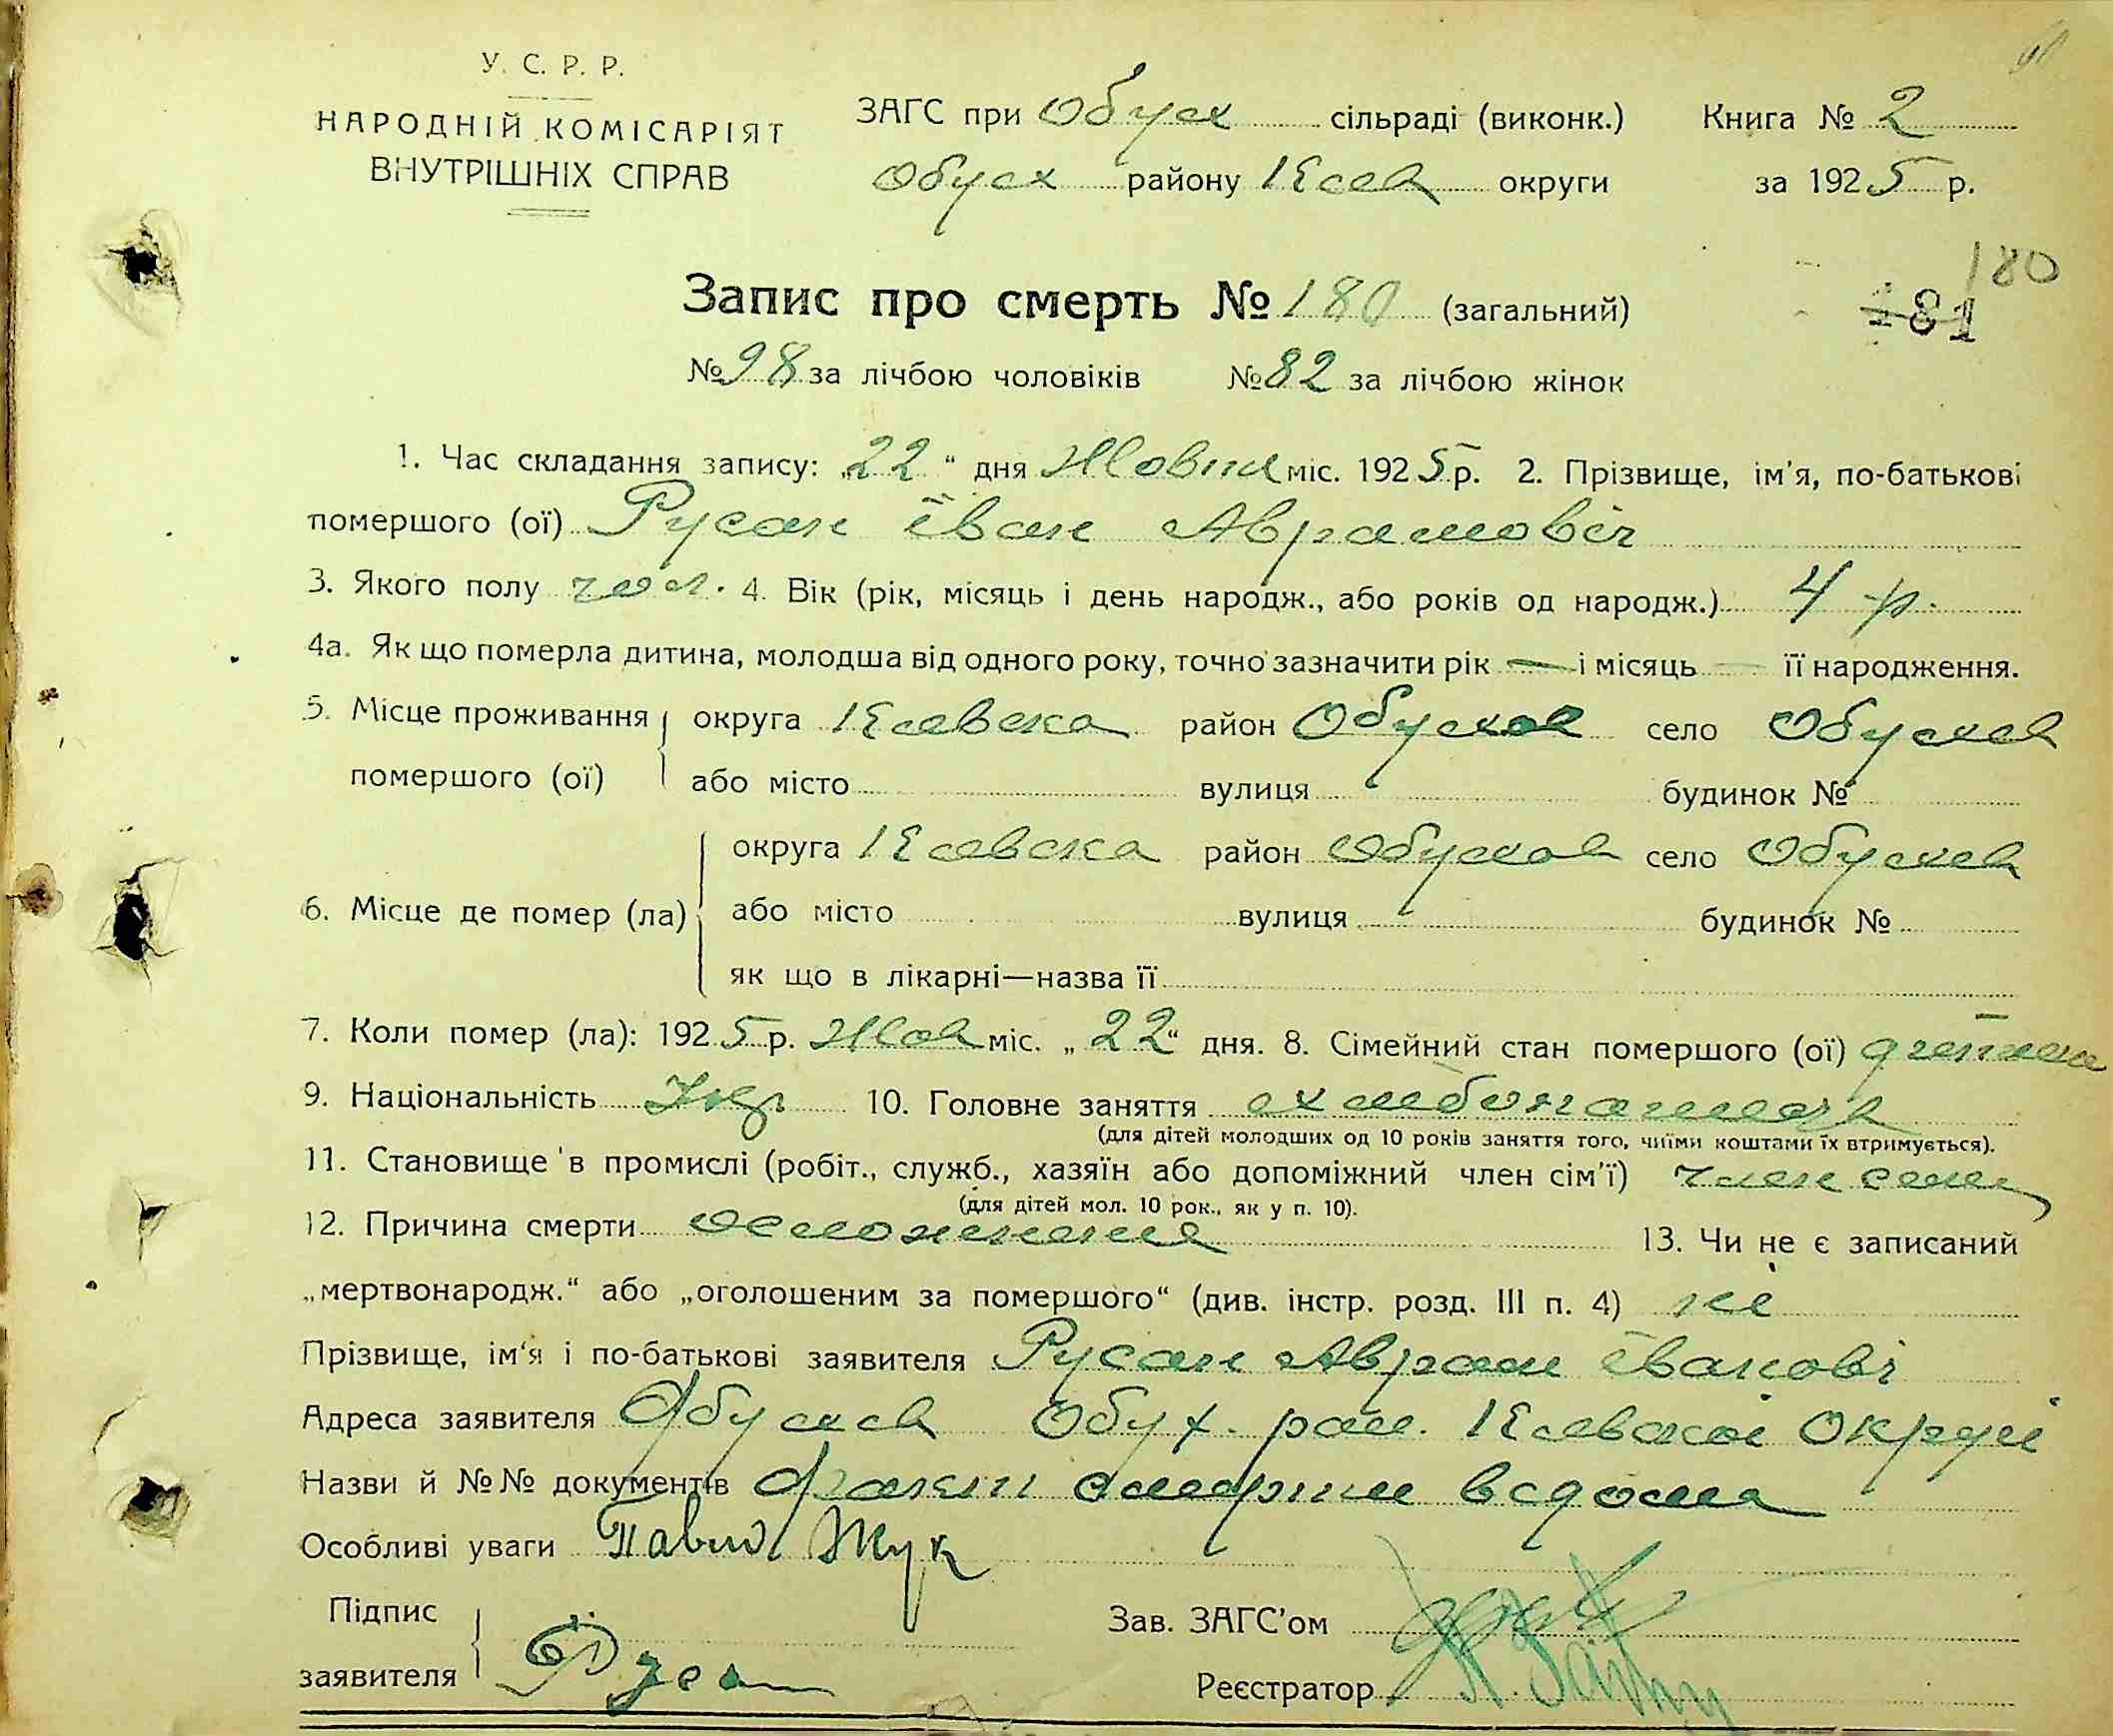 У. С. Р. Р.
НАРОДНІЙ КОМІСАРІЯТ
ВНУТРІШНІХ СПРАВ
ЗАГС при Обух сільраді (виконк.) Книга № 2
Обух району Киев округи за 1925 р.
180
181
Запис про смерть № 180 (загальний)
№ 98 за лічбою чоловіків № 82 за лічбою жінок
1. Час складання запису: „22“ дня Жовтн міс. 1925 р. 2. Прізвище, ім'я, по-батькові
помершого (ої) Русан Іван Аврамовіч
3. Якого полу чол. 4. Вік (рік, місяць і день народж., або років од народж.) 4 р.
4а. Як що померла дитина, молодша від одного року, точно зазначити рік — і місяць — її народження.
5. Місце проживання помершого (ої) округа Киевска район Обухов село Обухов
або місто вулиця будинок №
6. Місце де помер (ла) округа Киевска район Обухов село Обухов
або місто вулиця будинок №
як що в лікарні—назва її
7. Коли помер (ла): 1925 р. Жов міс. „22“ дня. 8. Сімейний стан помершого (ої)
9. Національність Укр 10. Головне заняття
(для дітей молодших од 10 років заняття того, чиїми коштами їх втримується).
11. Становище в промислі (робіт., служб., хазяїн або допоміжний член сім'ї) член семи
(для дітей мол. 10 рок., як у п. 10).
12. Причина смерти 13. Чи не є записаний
„мертвонародж.“ або „оголошеним за помершого“ (див. інстр. розд. III п. 4) ні
Прізвище, ім'я і по-батькові заявителя Русан Аврам Іванові
Адреса заявителя Обухов Обух. рай. Киевскої Округи
Назви й №№ документів Факт смерти
Особливі уваги Павло Жук
Підпис заявителя Руса
Зав. ЗАГС'ом
Реєстратор